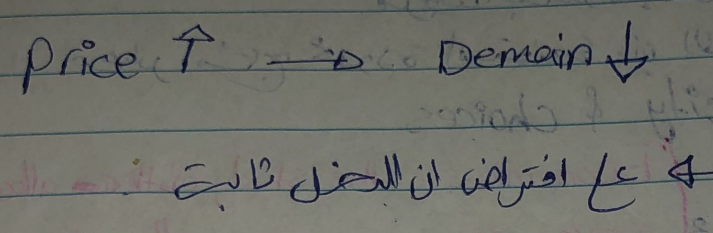 Price ↑ → Demain ↓
← ع افتراض ان الدخل ثابت